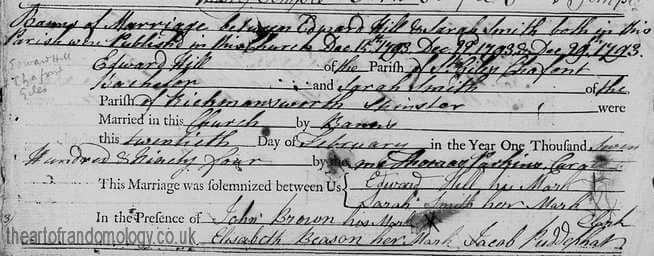 Banns of Marriage between Edward Hill & Sarah Smith both in this
Parish were Published in this Church Dec 15th 1793 Dec 22d 1793 & Dec 29th 1793.
Edward Hill of the Parish of St Giles Chafont
Bachelor and Sarah Smith of the
Parish of Richmansworth Spinster were
Married in this Church by Banns
this twentieth Day of February in the Year One Thousand Seven
Hundred & Ninety four by me Thomas Curate
This Marriage was solemnized between Us
Edward Hill his Mark
Sarah Smith her Mark
In the Presence of John Brown his Mark X Clark
Elisabeth Beason her Mark Jacob Puddephat
Edward Hill
Chafont
Giles
theartofrandomology.co.uk